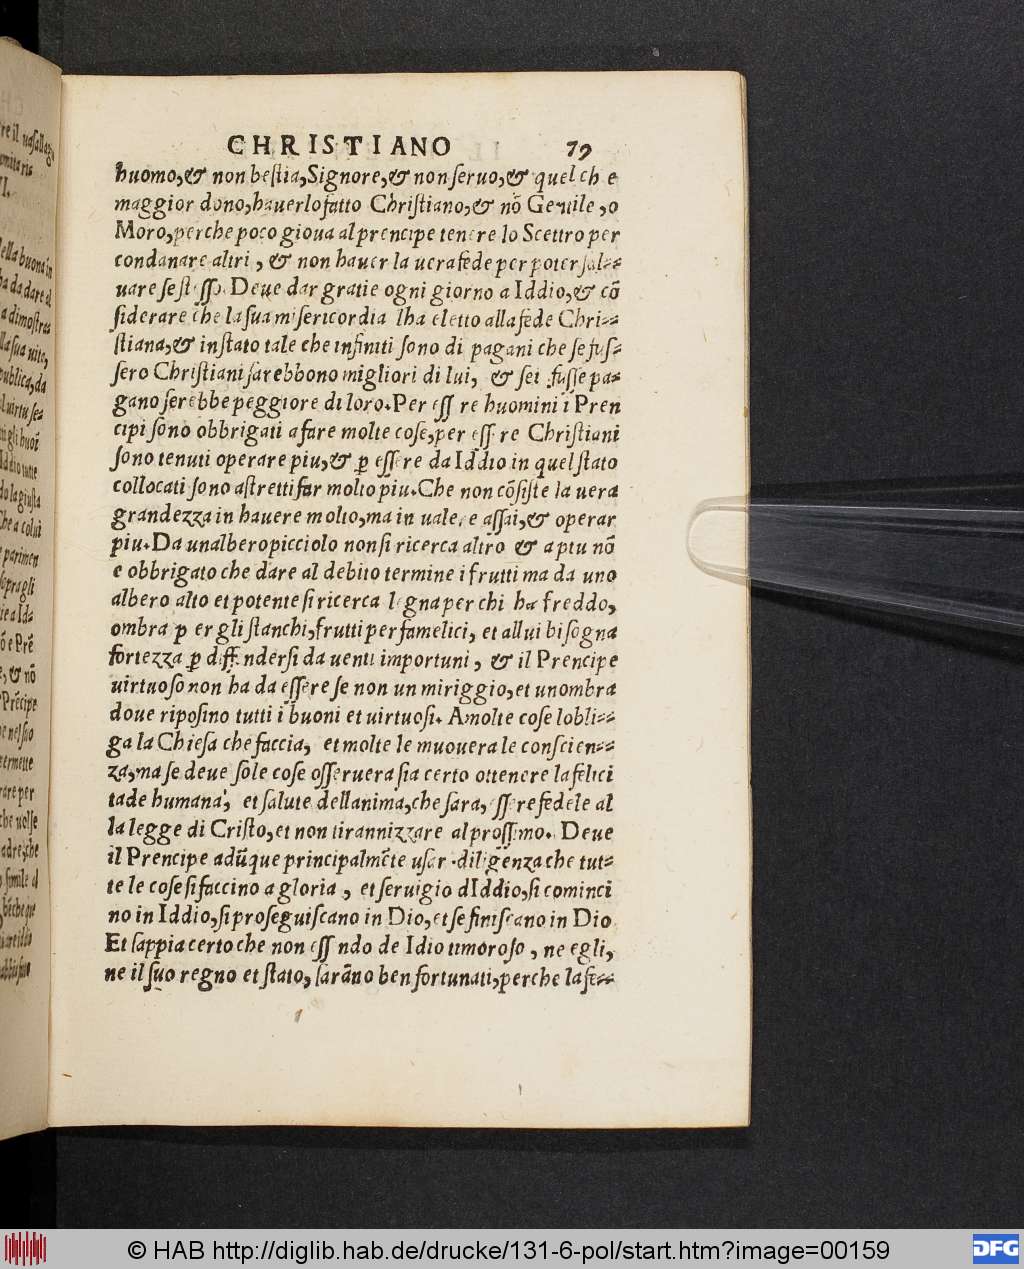 CHRISTIANO 79
huomo,& non beſtia,Signore,& non ſeruo,& quel ch e
maggior dono,hauerlo fatto Chriſtiano,& nõ Gentile ,o
Moro,perche poco gioua al prencipe tenere lo Scettro per
condanare altri , & non hauer la uera fede per poter ſal=
uare ſe ſteſſo. Deue dar gratie ogni giorno a Iddio,& cõ
ſiderare che la ſua miſericordia lha eletto alla fede Chri=
ſtiana,& in ſtato tale che infiniti ſono di pagani che ſe fuſ=
ſero Chriſtiani ſarebbono migliori di lui, & ſei fuſſe pa=
gano ſerebbe peggiore di loro.Per eſſ re huomini i Pren
cipi ſono obbrigati a fare molte coſe,per eſſ re Chriſtiani
ſono tenuti operare piu,& ꝑ eſſere da Iddio in quel ſtato
collocati ſono aſtretti far molto piu.Che non cõſiſte la uera
grandezza in hauere molto,ma in ualere aſſai,& operar
piu.Da unalbero picciolo non ſi ricerca altro & aptu nõ
e obbrigato che dare al debito termine i frutti ma da uno
albero alto et potente ſi ricerca legna per chi ha freddo,
ombra ꝑ er gli ſtanchi,frutti per famelici, et allui biſogna
fortezza ꝑ diffendersi da uenti importuni , & il Prencipe
uirtuoſo non ha da eſſere ſe non un miriggio,et unombra
doue ripoſino tutti i buoni et uirtuoſi. A molte coſe lobli=
ga la Chieſa che faccia, et molte le muouera le conſcien=
za,ma ſe deue ſole coſe oſſeruera ſia certo ottenere la felici
tade humana, et ſalute dellanima,che ſara, eſſere fedele al
la legge di Criſto,et non tirannizzare al proſſimo. Deue
il Prencipe adũque principalmẽte uſar diligenza che tut=
te le coſe ſi faccino a gloria , et ſeruigio dIddio,ſi cominci
no in Iddio,ſi proſeguiſcano in Dio,et ſe finiſcano in Dio
Et ſappia certo che non eſſ ndo de Idio timoroſo , ne egli,
ne il ſuo regno et ſtato, ſarãno ben fortunati,perche la ſe=
© HAB http://diglib.hab.de/drucke/131-6-pol/start.htm?image=00159
DFG